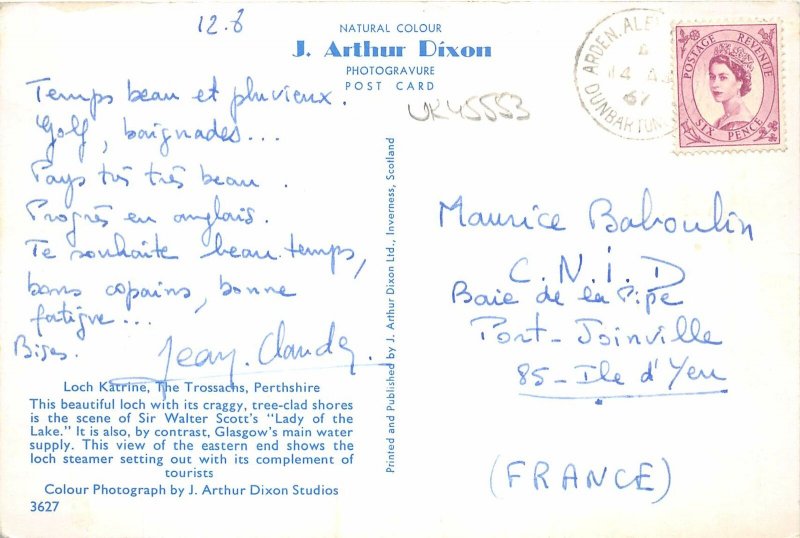 12.8
NATURAL COLOUR
J. Arthur Dixon
PHOTOGRAVURE
POST CARD
UK45553
Temps beau et pluvieux.
Golf, baignades...
Pays très très beau.
Progrès en anglais.
Te souhaite beau temps,
bons copains, bonne
fatigue...
Bises.
Jean-Claude
Loch Katrine, The Trossachs, Perthshire
This beautiful loch with its craggy, tree-clad shores
is the scene of Sir Walter Scott's "Lady of the
Lake." It is also, by contrast, Glasgow's main water
supply. This view of the eastern end shows the
loch steamer setting out with its complement of
tourists
Colour Photograph by J. Arthur Dixon Studios
3627
Printed and Published by J. Arthur Dixon Ltd., Inverness, Scotland
ARDEN. ALE
14 AU
67
DUNBARTON
POSTAGE REVENUE
SIX PENCE
Maurice Baboulin
C.N.I.D
Baie de la Pipe
Port-Joinville
85-Ile d'Yeu
(FRANCE)